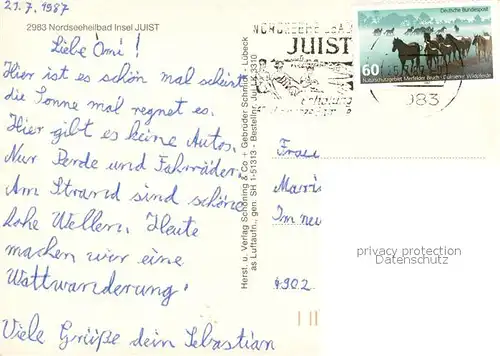 21.7.1987
2983 Nordseeheilbad Insel JUIST
Liebe Omi!
Hier ist es schön mal scheint
die Sonne mal regnet es.
Hier gibt es keine Autos.
Nur Perde und Fahrräder.
Am Strand sind schöne
hohe Wellen. Heute
machen wir eine
Wattwanderung.
Viele Grüße dein Sebastian
Herst. u. Verlag Schöning & Co + Gebrüder Schmidt - Lübeck
as Luftaufn., gen. SH 1-51313 - Bestellnr. Juist K 3310
JUIST
Erholung
983
Deutsche Bundespost
60
Naturschutzgebiet Merfelder Bruch · Dülmener Wildpferde
Frau
Im
4902
privacy protection
Datenschutz